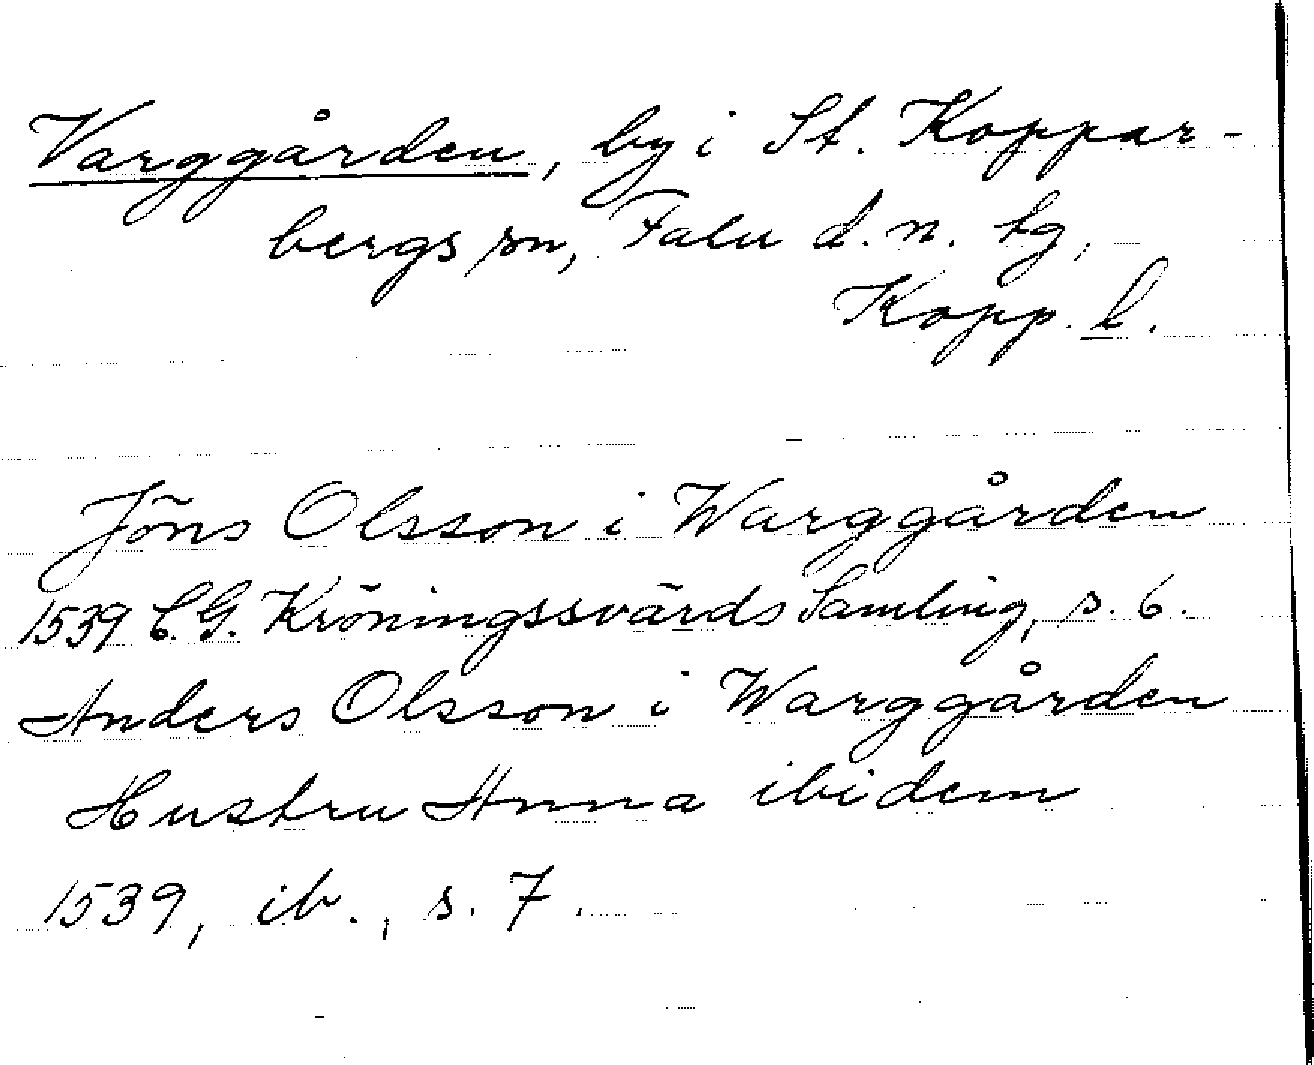 Varggården, by i St. Koppar-
bergs sn, Falu d. n. tg,
Kopp. l.
Jöns Olsson i Warggården
1539 C. G. Kröningssvärds Samling, s. 6.
Anders Olsson i Warggården
Hustru Anna ibidem
1539, ib., s. 7.